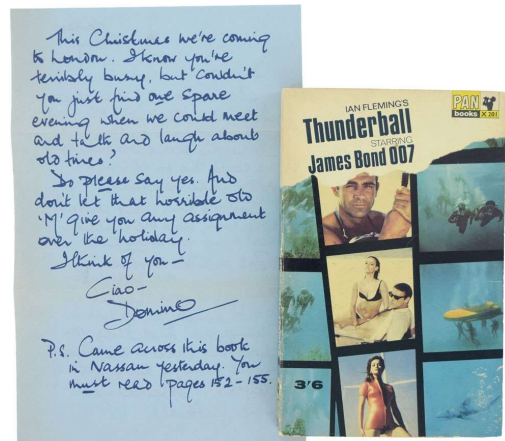 This Christmas we're coming
to London. I know you're
terribly busy, but couldn't
you just find one spare
evening when we could meet
and talk and laugh about
old times?
Do please say yes. And
don't let that horrible old
'M' give you any assignment
over the holiday.
I think of you –
Ciao –
Domino
P.S. Came across this book
in Nassau yesterday. You
must read pages 152–155.
PAN
books X201
IAN FLEMING'S
Thunderball
STARRING
James Bond 007
3'6